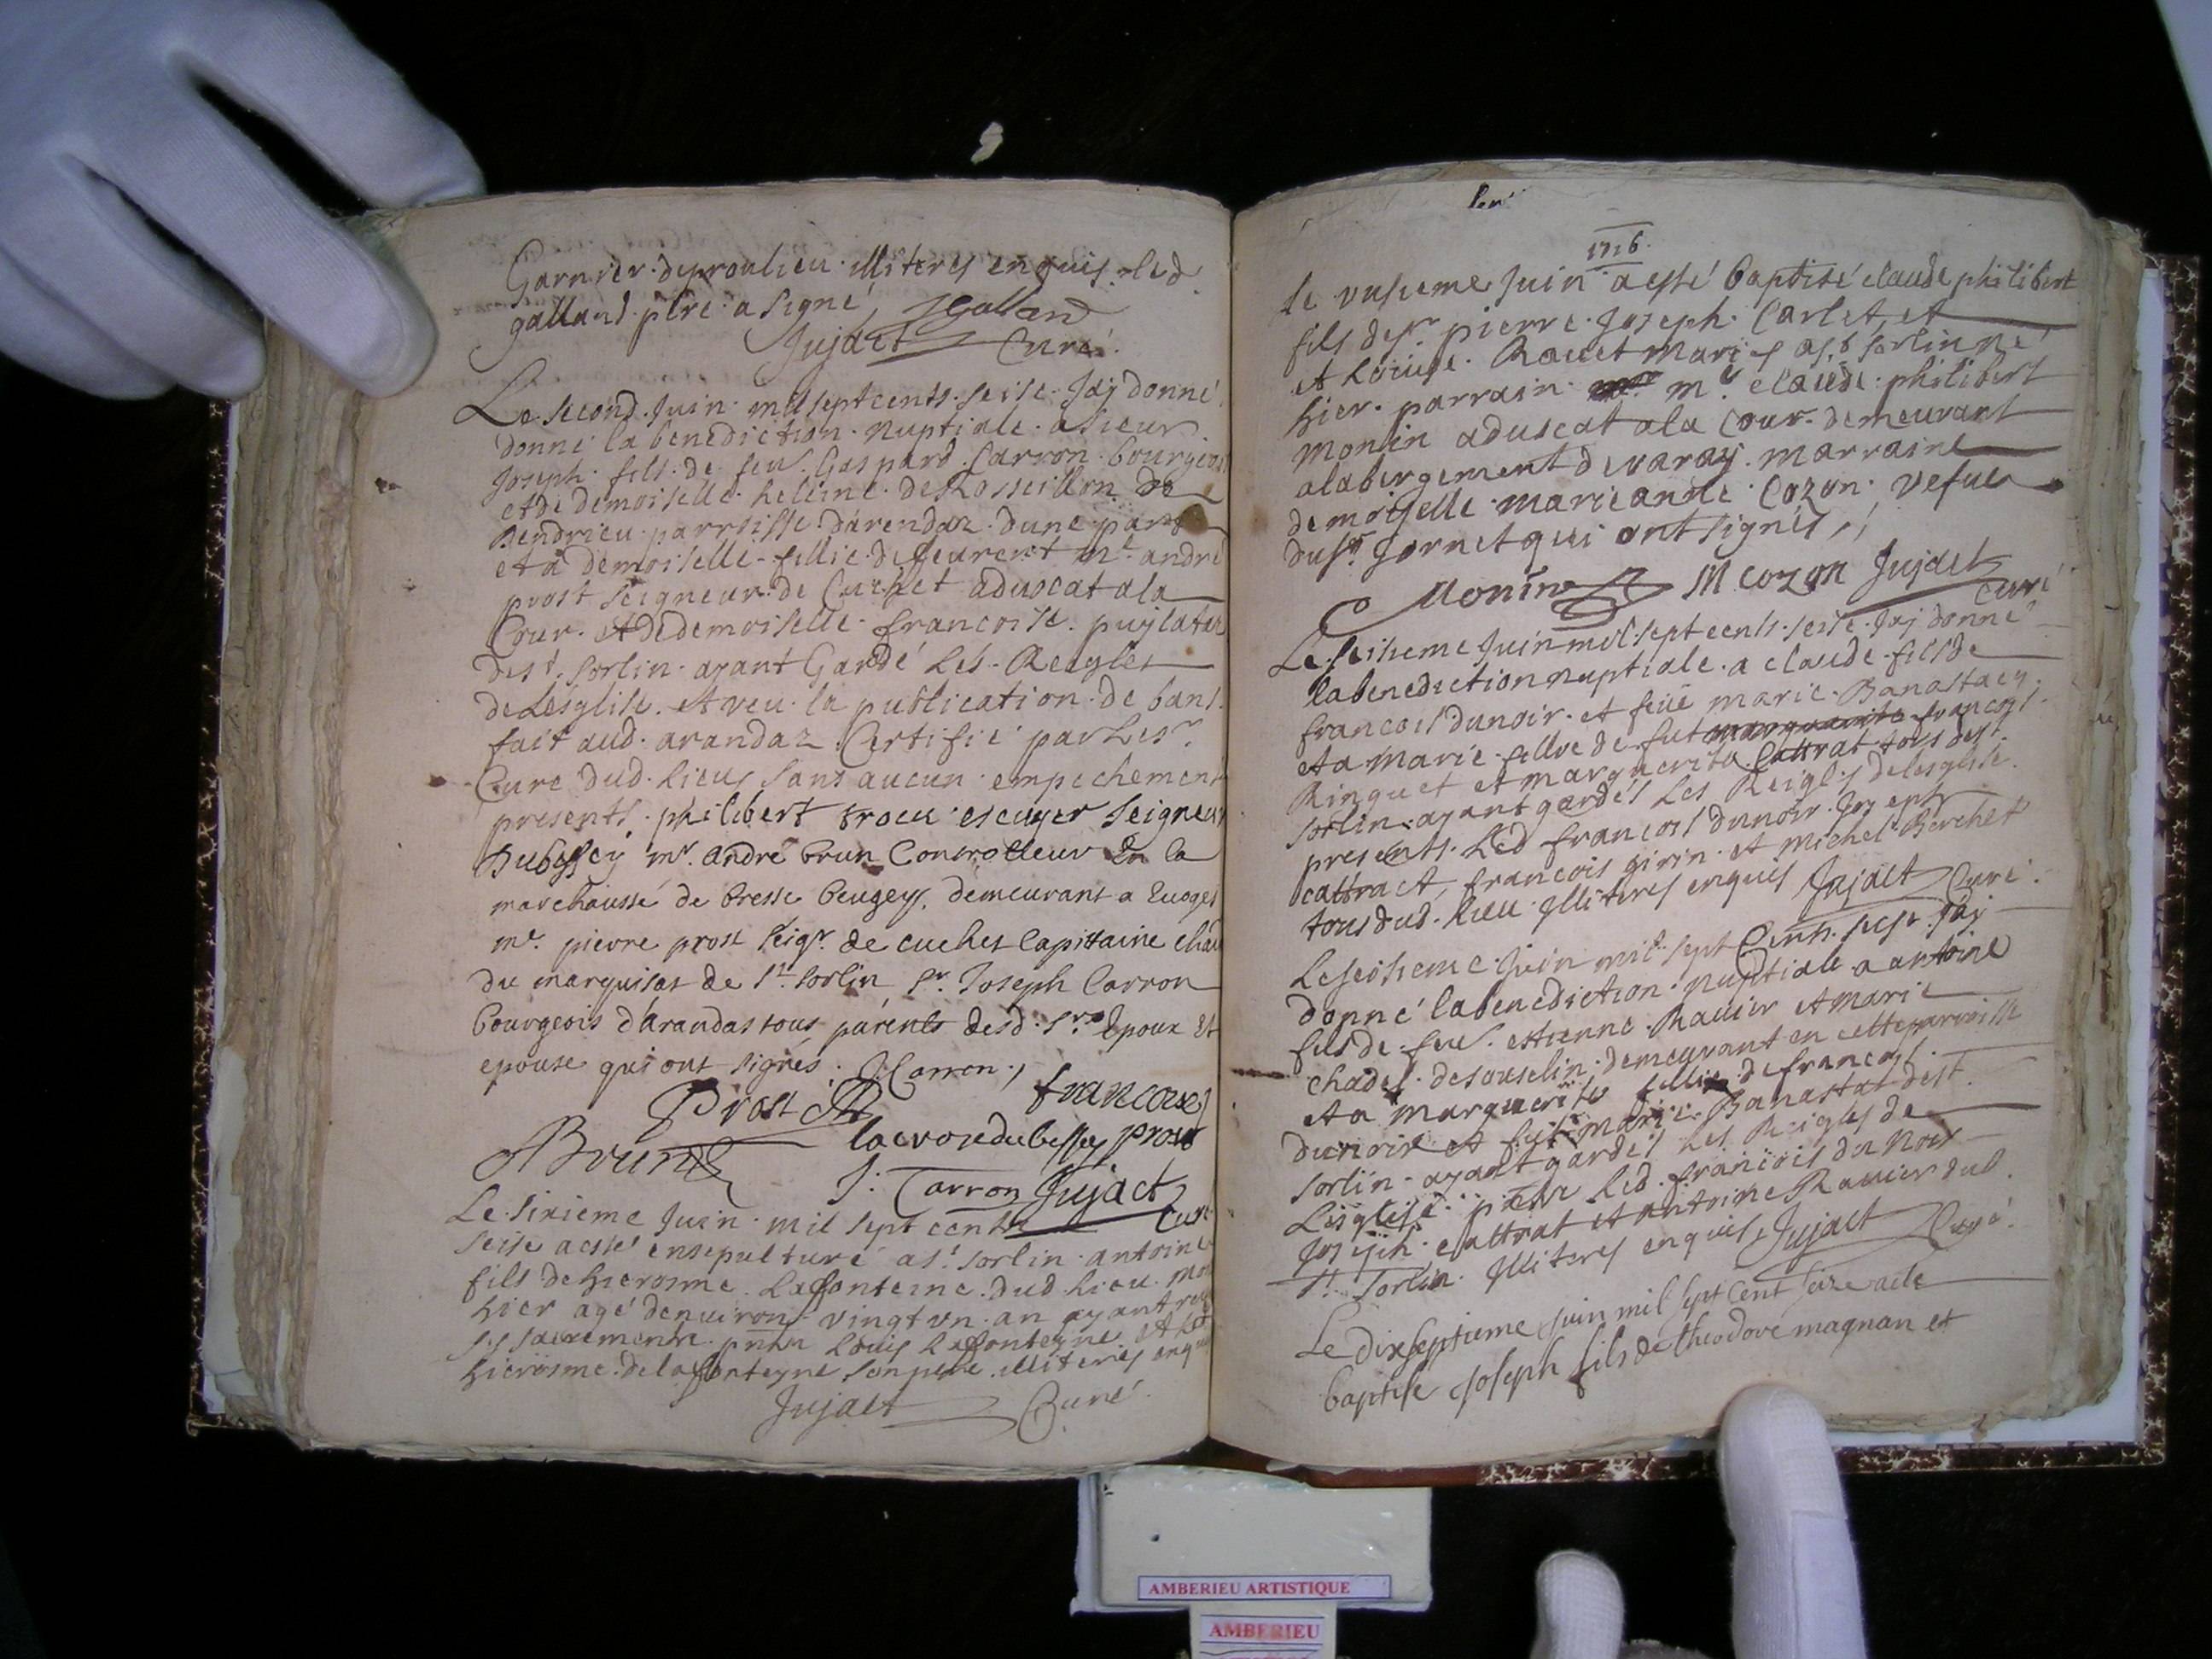 Garnier de proulieu illiteres enquis led
galland ptre a signé JGalland
Jujact Curé
Le second Juin mil sept cents seise Jaj donné
donné la benediction nuptiale a Sieur
Joseph fils de feu Gaspard Carron bourgeois
et de demoiselle heleine de Rosseillon de
Bendrieu parroisse d'arendaz dune part
et a demoiselle fillie de feu mr andré
prost seigneur de Cuchet advocat a la
Cour et de demoiselle francoise
de st sorlin ayant Gardé les Reigles
de Lesglise et veu la publication de bans
fait aud arandaz Certifié par Le sr
Curé dud lieu sans aucun empechement
presents philibert trocu escuyer seigneur
Dubessey mr andré brun Controlleur En la
marchaussé de bresse beugey demeurant a
mr pierre prost seigr de cuchet Capittaine
du marquisat de st sorlin sr Joseph Carron
bourgeois d'arandas tous parents desd srs Epoux Et
epouse qui ont signés J Carron
Prost francoise
ABrun lacroix dubessey prost
J: Carron Jujact
Le sixieme Juin mil sept cents Curé
seise a esté ensepulturé a st sorlin antoine
fils de hierosme Lafonteine dud lieu
hier agé denuiron vingt vn an ayant
ses sacrements Louis Lafonteyne et
hierosme de lafonteyne son pere illiteres
Jujact Curé
1716
le Juin a esté baptisé claude philibert
fils de sr pierre Joseph Carlet et
et Louise Rauet mariés a st sorlin né
hier parrain mr claude philibert
monin aduocat a la Cour demeurant
alabergement de varaÿ marraine
demoiselle marieanne Cozon vefue
du sr Jornet qui ont signés
Monin M cozon Jujact
Curé
Le seisieme Juin mil sept cents seise Jaj donné
la benediction nuptiale a claude fils de
francois dunoir et feüe marie Banastacy
et a marie fillie de fut marguerite francois
Ringuet et marguerite Cattrat tous de st
sorlin ayant gardés Les Reigles de lesglise
presents Led francois dunoir Joseph
cattract, francois girin et michel Berchet
tous dud lieu Illiteres enquis Jujact Curé
Le seisieme Juin mil sept Cents seise Jaj
donné la benediction nuptiale a antoine
fils de feu estienne Rauier et marie
chadel de souselin demeurant en cette parroisse
et a marguerite fillie de francois
dunoir et marie Banastat de st
sorlin ayant gardés Les Reigles de
Lesglise Led francois du Noir
Joseph Cattrat et antoine Rauier dud
st sorlin Illiteres enquis Jujact Curé
Le dixseptieme Juin mil sept cent seize
baptise Joseph fils de theodore magnan et
AMBERIEU ARTISTIQUE
AMBERIEU